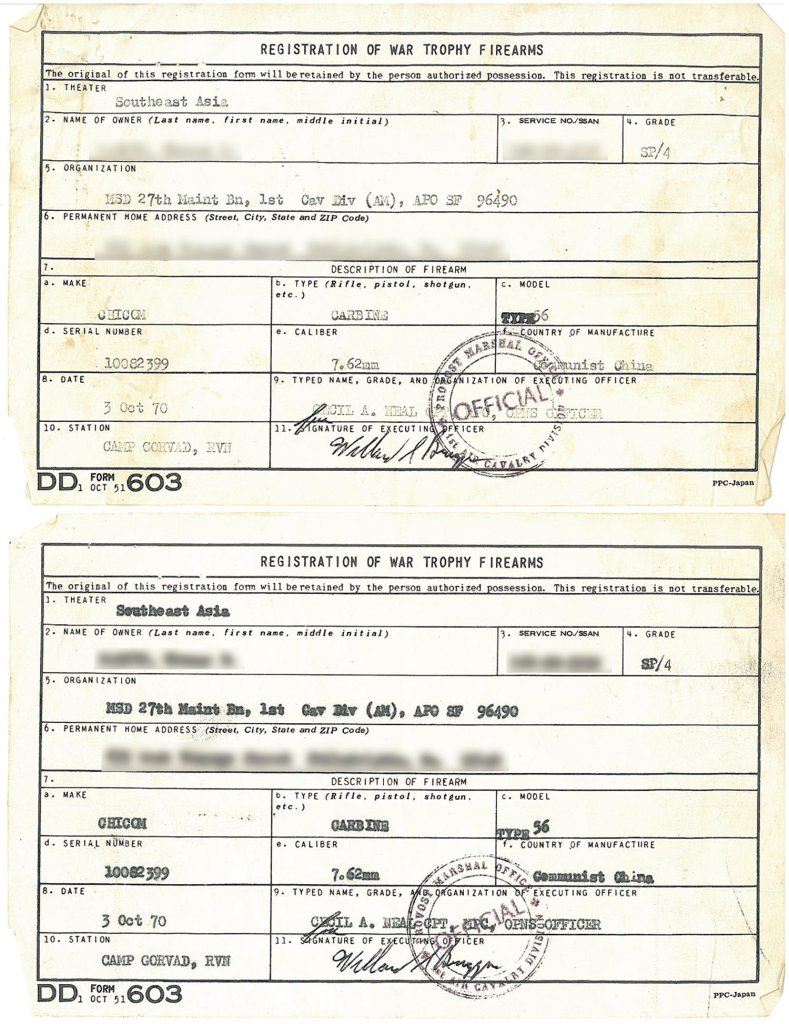 REGISTRATION OF WAR TROPHY FIREARMS
The original of this registration form will be retained by the person authorized possession. This registration is not transferable.
1. THEATER
Southeast Asia
2. NAME OF OWNER (Last name, first name, middle initial)
3. SERVICE NO./SSAN
4. GRADE
SP/4
5. ORGANIZATION
MSD 27th Maint Bn, 1st Cav Div (AM), APO SF 96490
6. PERMANENT HOME ADDRESS (Street, City, State and ZIP Code)
7. DESCRIPTION OF FIREARM
a. MAKE
CHICOM
b. TYPE (Rifle, pistol, shotgun, etc.)
CARBINE
c. MODEL
TYPE 56
d. SERIAL NUMBER
10082399
e. CALIBER
7.62mm
f. COUNTRY OF MANUFACTURE
Communist China
8. DATE
3 Oct 70
9. TYPED NAME, GRADE, AND ORGANIZATION OF EXECUTING OFFICER
CECIL A. NEAL CPT, MPC, OPNS OFFICER
10. STATION
CAMP GORVAD, RVN
11. SIGNATURE OF EXECUTING OFFICER
PROVOST MARSHAL OFFICE
OFFICIAL
1st AIR CAVALRY DIVISION
DD FORM 1 OCT 51 603
PPC-Japan
REGISTRATION OF WAR TROPHY FIREARMS
The original of this registration form will be retained by the person authorized possession. This registration is not transferable.
1. THEATER
Southeast Asia
2. NAME OF OWNER (Last name, first name, middle initial)
3. SERVICE NO./SSAN
4. GRADE
SP/4
5. ORGANIZATION
MSD 27th Maint Bn, 1st Cav Div (AM), APO SF 96490
6. PERMANENT HOME ADDRESS (Street, City, State and ZIP Code)
7. DESCRIPTION OF FIREARM
a. MAKE
CHICOM
b. TYPE (Rifle, pistol, shotgun, etc.)
CARBINE
c. MODEL
TYPE 56
d. SERIAL NUMBER
10082399
e. CALIBER
7.62mm
f. COUNTRY OF MANUFACTURE
Communist China
8. DATE
3 Oct 70
9. TYPED NAME, GRADE, AND ORGANIZATION OF EXECUTING OFFICER
CECIL A. NEAL CPT, MPC, OPNS OFFICER
10. STATION
CAMP GORVAD, RVN
11. SIGNATURE OF EXECUTING OFFICER
PROVOST MARSHAL OFFICE
OFFICIAL
1st AIR CAVALRY DIVISION
DD FORM 1 OCT 51 603
PPC-Japan